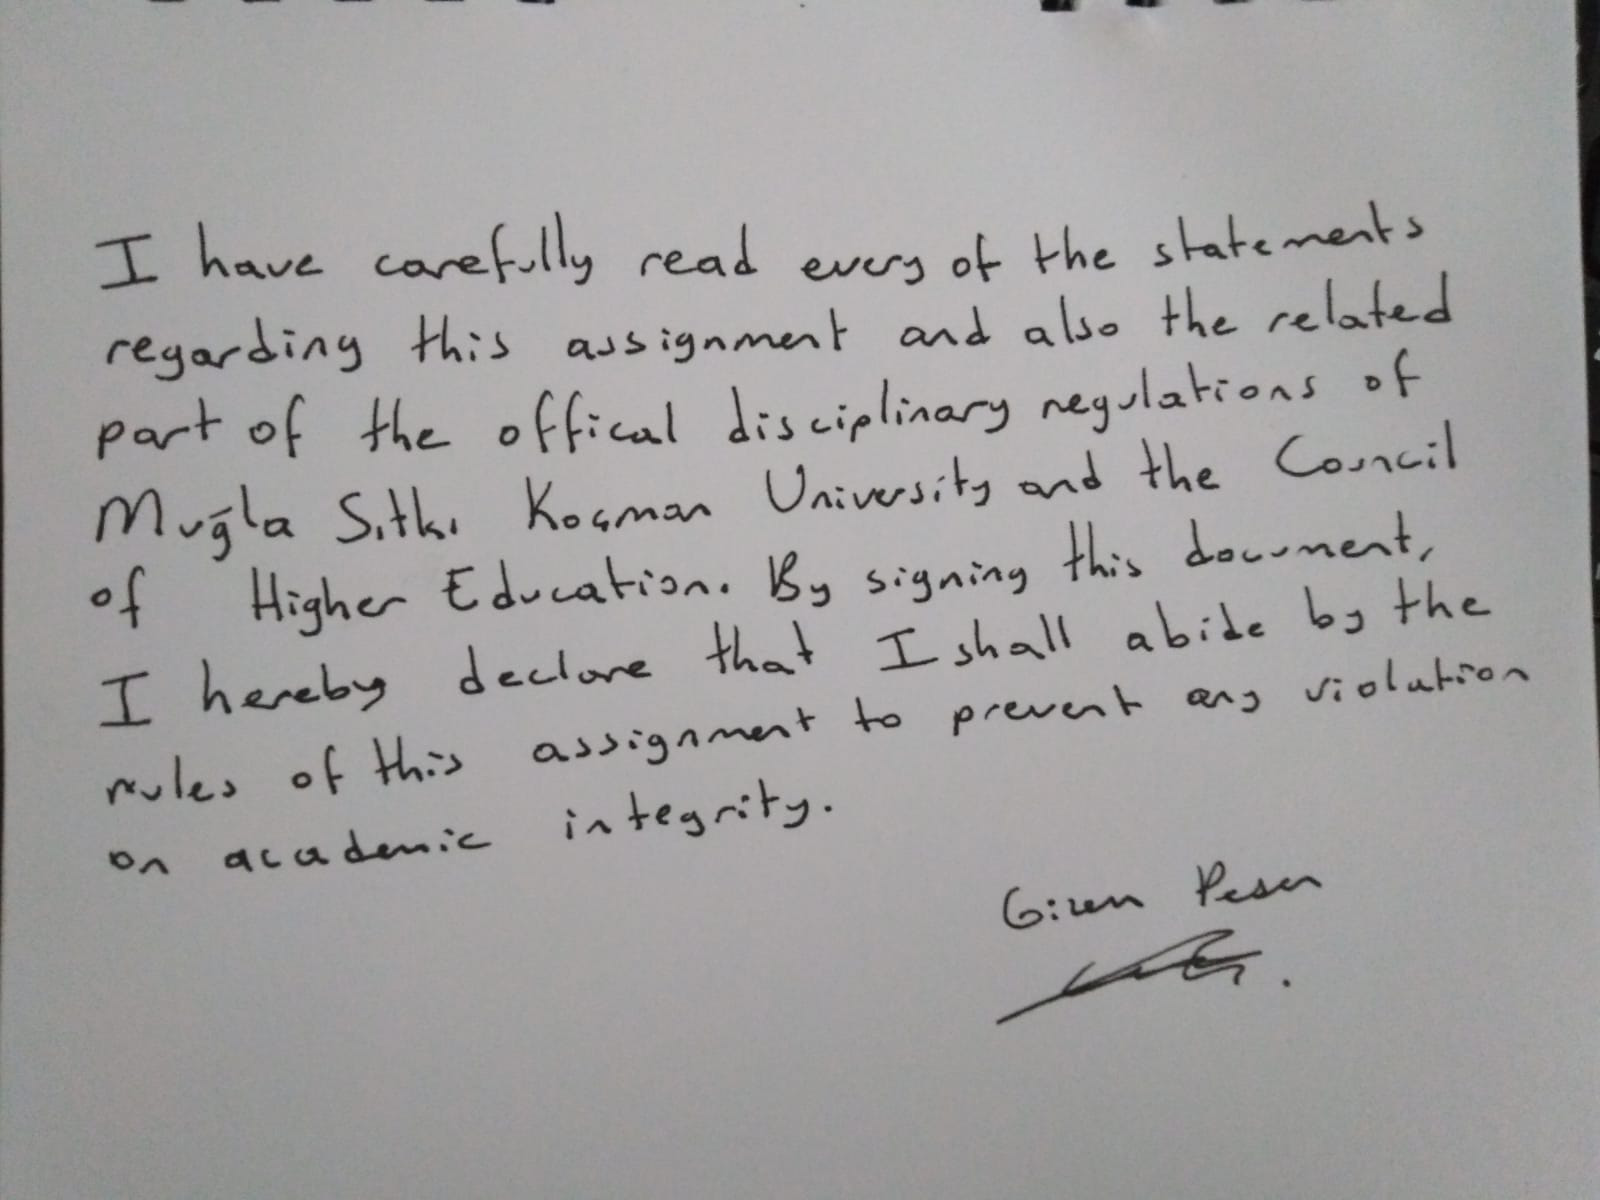 I have carefully read every of the statements
regarding this assignment and also the related
part of the offical disciplinary regulations of
Muğla Sıtkı Koçman University and the Council
of Higher Education. By signing this document,
I hereby declare that I shall abide by the
rules of this assignment to prevent any violation
on academic integrity.
Gizem